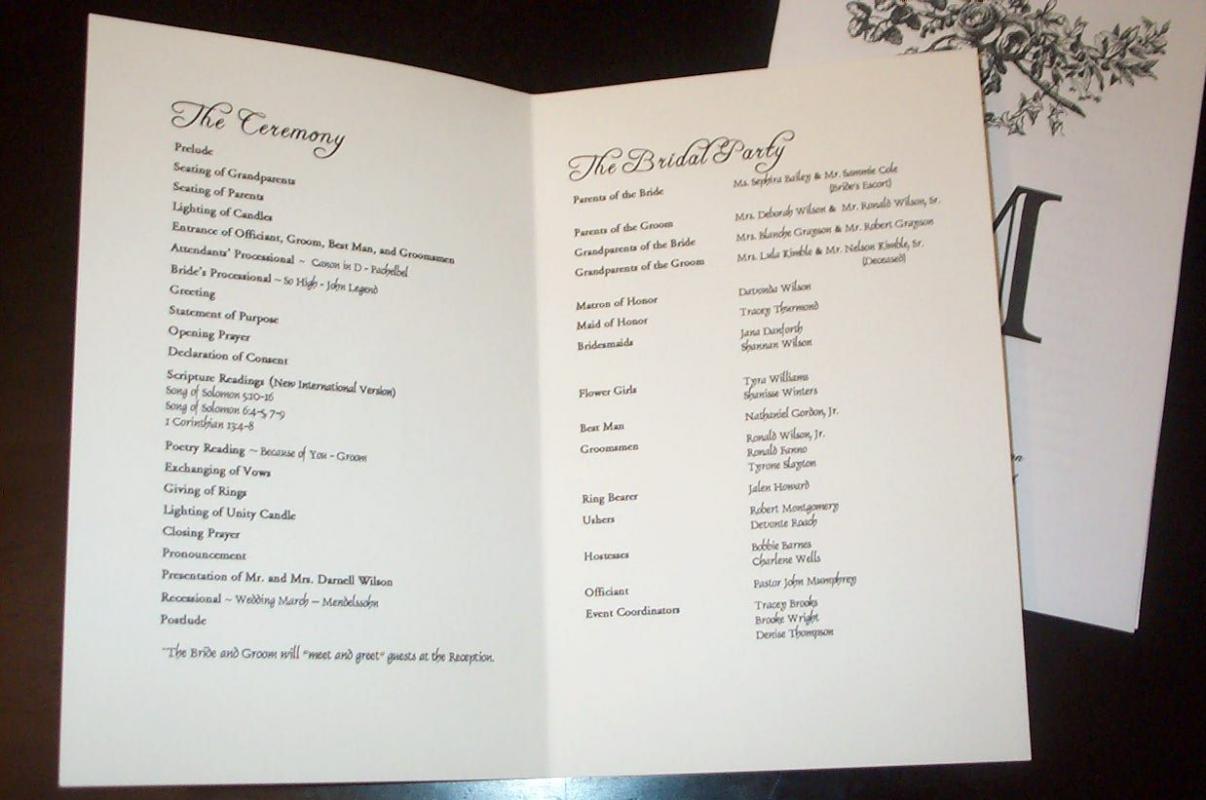 The Ceremony
Prelude
Seating of Grandparents
Seating of Parents
Lighting of Candles
Entrance of Officiant, Groom, Best Man, and Groomsmen
Attendants' Processional ~ Canon in D - Pachelbel
Bride's Processional ~ So High - John Legend
Greeting
Statement of Purpose
Opening Prayer
Declaration of Consent
Scripture Readings (New International Version)
Song of Solomon 5:10-16
Song of Solomon 6:4-5, 7-9
1 Corinthian 13:4-8
Poetry Reading ~ Because of You - Groom
Exchanging of Vows
Giving of Rings
Lighting of Unity Candle
Closing Prayer
Pronouncement
Presentation of Mr. and Mrs. Darnell Wilson
Recessional ~ Wedding March – Mendelssohn
Postlude
*The Bride and Groom will "meet and greet" guests at the Reception.
The Bridal Party
Parents of the Bride Ms. Sephira Bailey & Mr. Sammie Cole
(Bride's Escort)
Parents of the Groom Mrs. Deborah Wilson & Mr. Ronald Wilson, Sr.
Grandparents of the Bride Mrs. Blanche Grayson & Mr. Robert Grayson
Grandparents of the Groom Mrs. Lula Kimble & Mr. Nelson Kimble, Sr.
(Deceased)
Matron of Honor Davonda Wilson
Maid of Honor Tracey Thurmond
Bridesmaids Jana Danforth
Shannan Wilson
Flower Girls Tyra Williams
Shanisse Winters
Best Man Nathaniel Gordon, Jr.
Groomsmen Ronald Wilson, Jr.
Ronald Fanno
Tyrone Slayton
Ring Bearer Jalen Howard
Ushers Robert Montgomery
Devonte Roach
Hostesses Bobbie Barnes
Charlene Wells
Officiant Pastor John Mumphrey
Event Coordinators Tracey Brooks
Brooke Wright
Denise Thompson
M